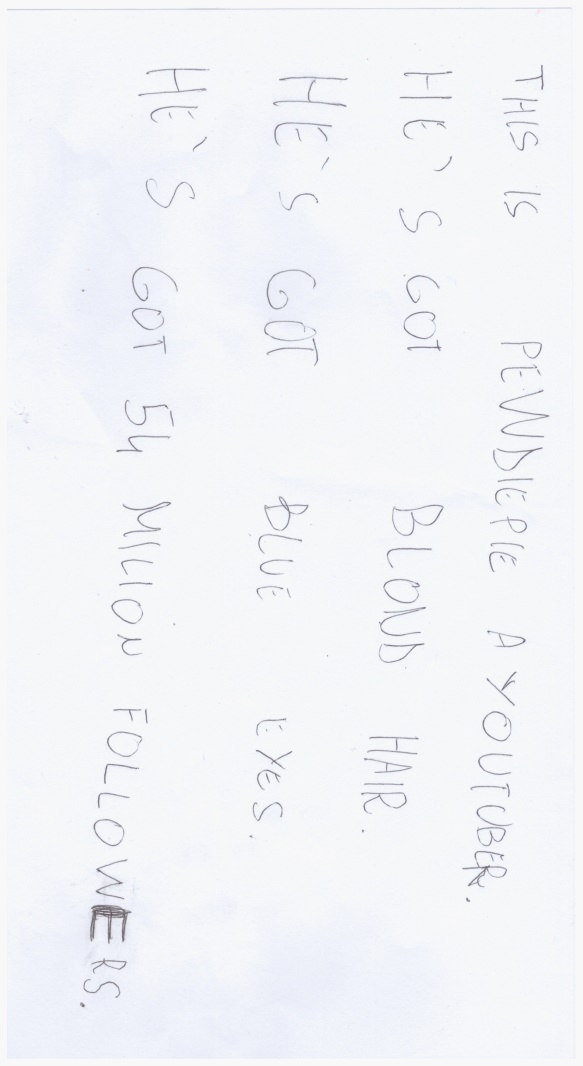 THIS IS PEWDIEPIE A YOUTUBER.
HE'S GOT BLOND HAIR.
HE`S GOT BLUE EYES.
HE`S GOT 54 MILLION FOLLOWERS.